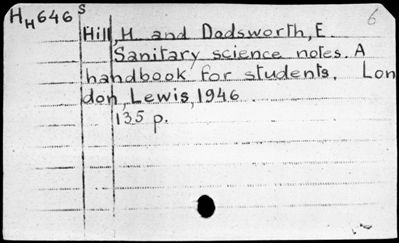 HH646 S
6
Hill, H. and Dodsworth, E.
Sanitary science notes. A
handbook for students. Lon
don, Lewis, 1946
135 p.